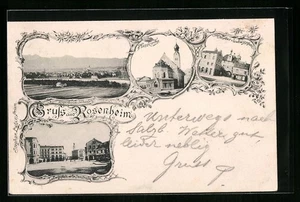 Gruß aus Rosenheim
Unterwegs nach
Salzb. Wetter gut
leider neblig
Gruss